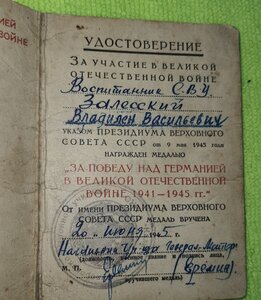 ЕЙ
ВОЙНЕ
УДОСТОВЕРЕНИЕ
ЗА УЧАСТИЕ В ВЕЛИКОЙ
ОТЕЧЕСТВЕННОЙ ВОЙНЕ
Воспитанник С.В.У
Залесский
Владилен Васильевич
УКАЗОМ ПРЕЗИДИУМА ВЕРХОВНОГО
СОВЕТА СССР от 9 мая 1945 года
НАГРАЖДЕН МЕДАЛЬЮ
"ЗА ПОБЕДУ НАД ГЕРМАНИЕЙ
В ВЕЛИКОЙ ОТЕЧЕСТВЕННОЙ
ВОЙНЕ 1941—1945 гг."
От имени ПРЕЗИДИУМА ВЕРХОВНОГО
СОВЕТА СССР МЕДАЛЬ ВРУЧЕНА
20 июня 1945 г.
Начальник Генерал-Майор
М. П. (Еремин)
вручившего медаль)